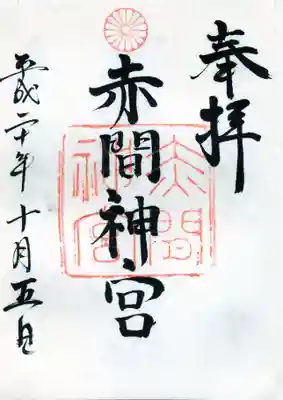 奉拝
赤間神宮
赤間神宮
平成二十年十月五日